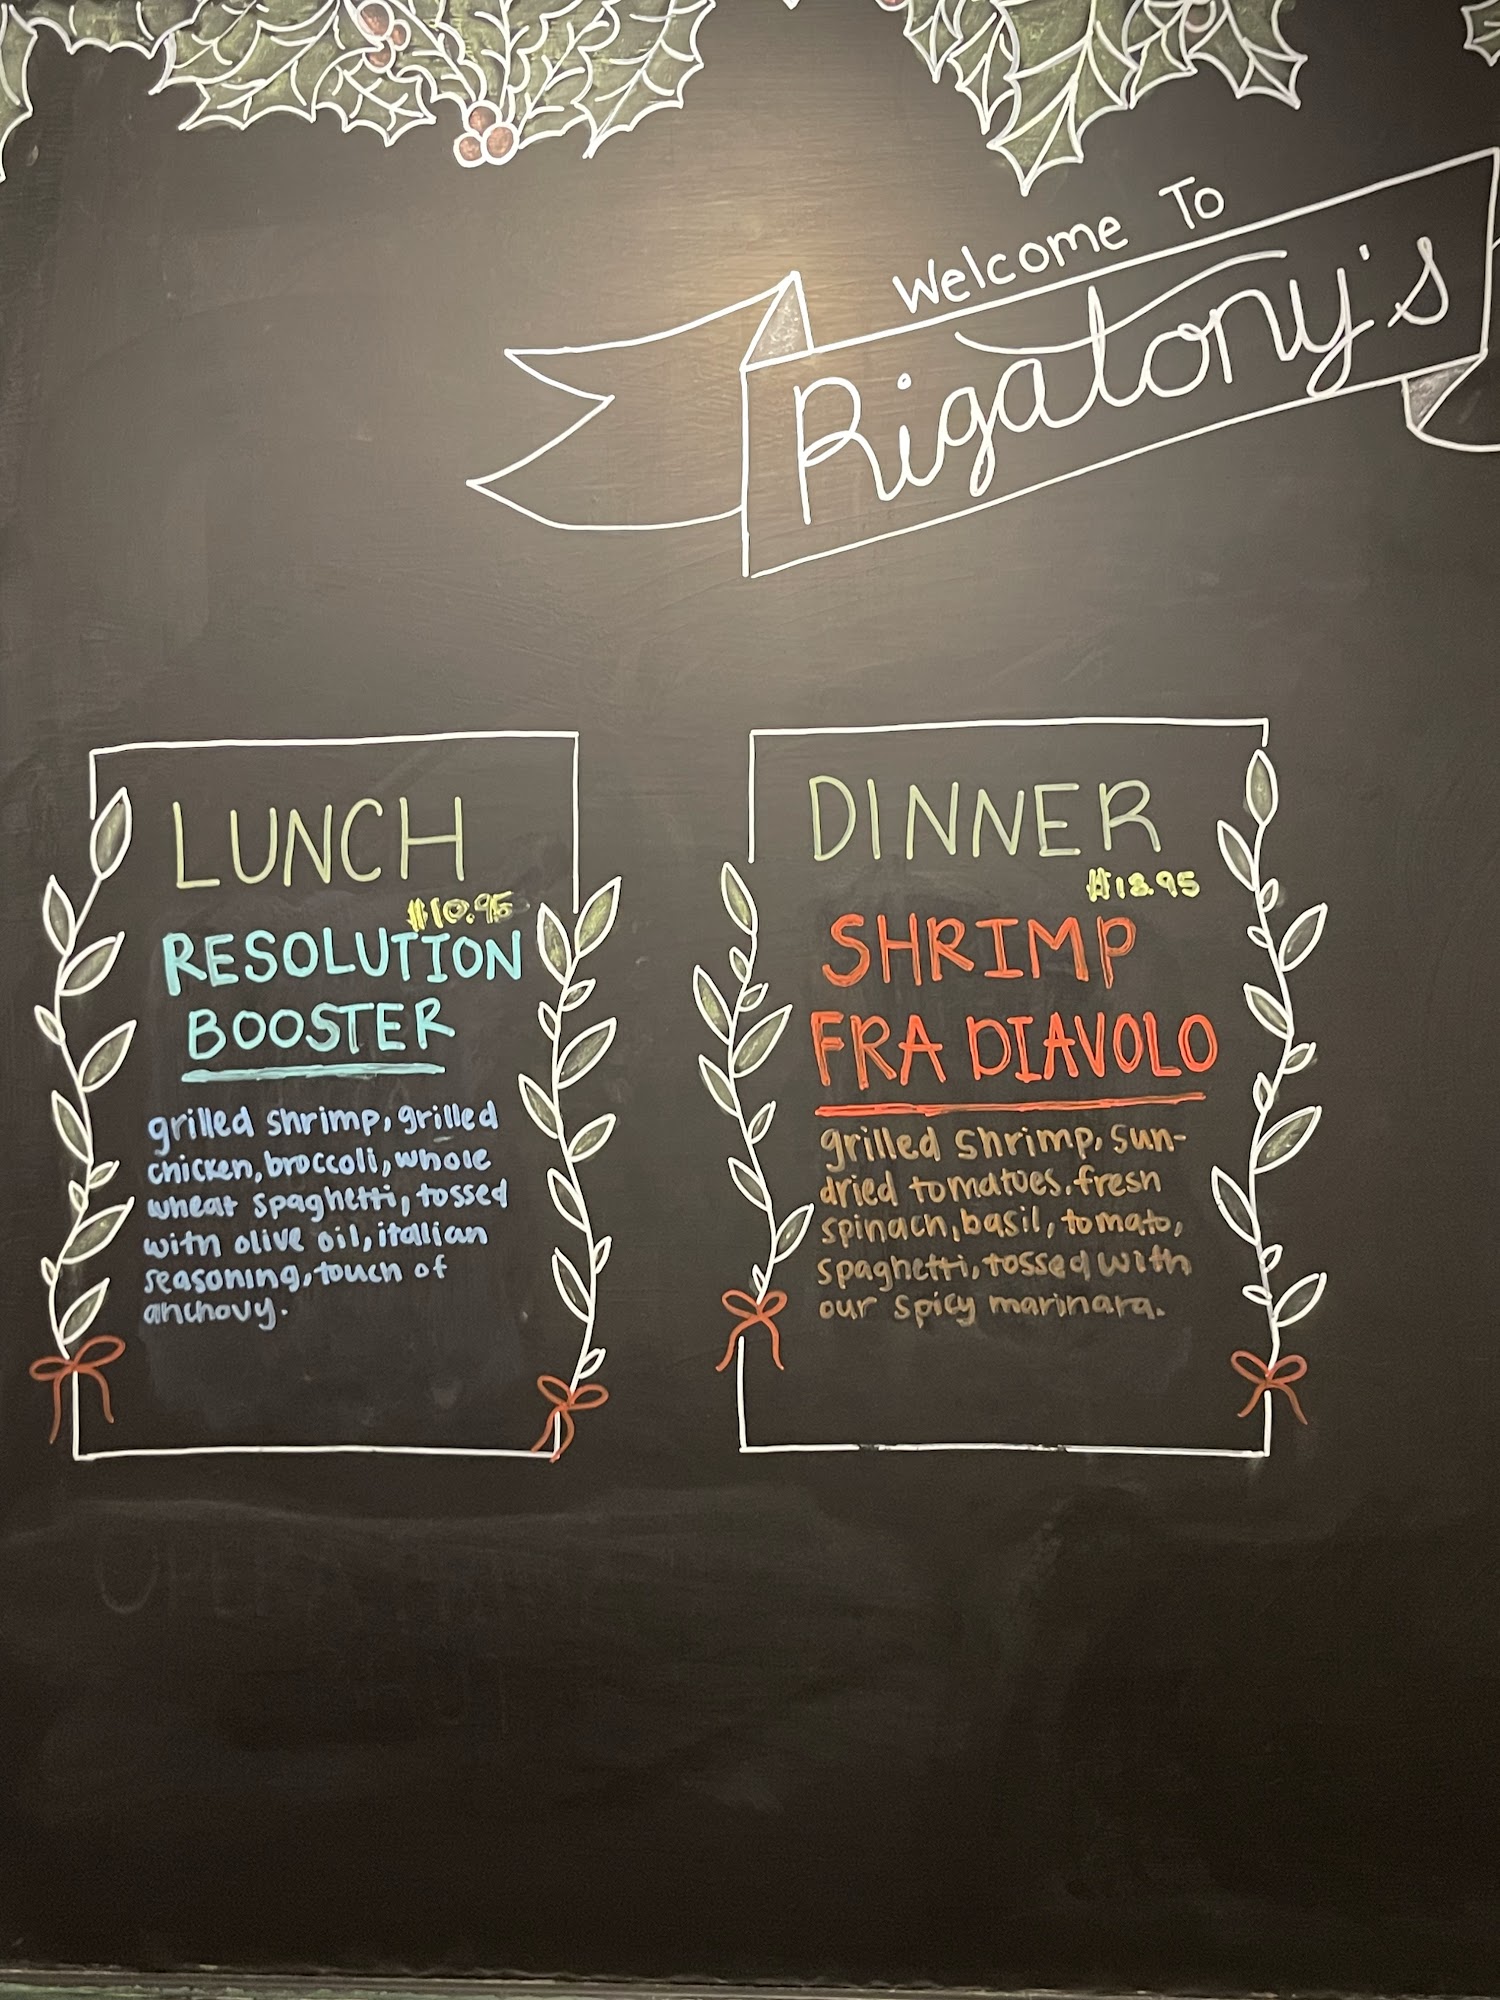 Welcome To
Rigatony's
LUNCH
$10.95
RESOLUTION
BOOSTER
grilled shrimp, grilled
chicken, broccoli, whole
wheat spaghetti, tossed
with olive oil, italian
seasoning, touch of
anchovy.
DINNER
SHRIMP
FRA DIAVOLO
grilled shrimp, sun-
dried tomatoes, fresh
spinach, basil, tomato,
spaghetti, tossed with
our spicy marinara.